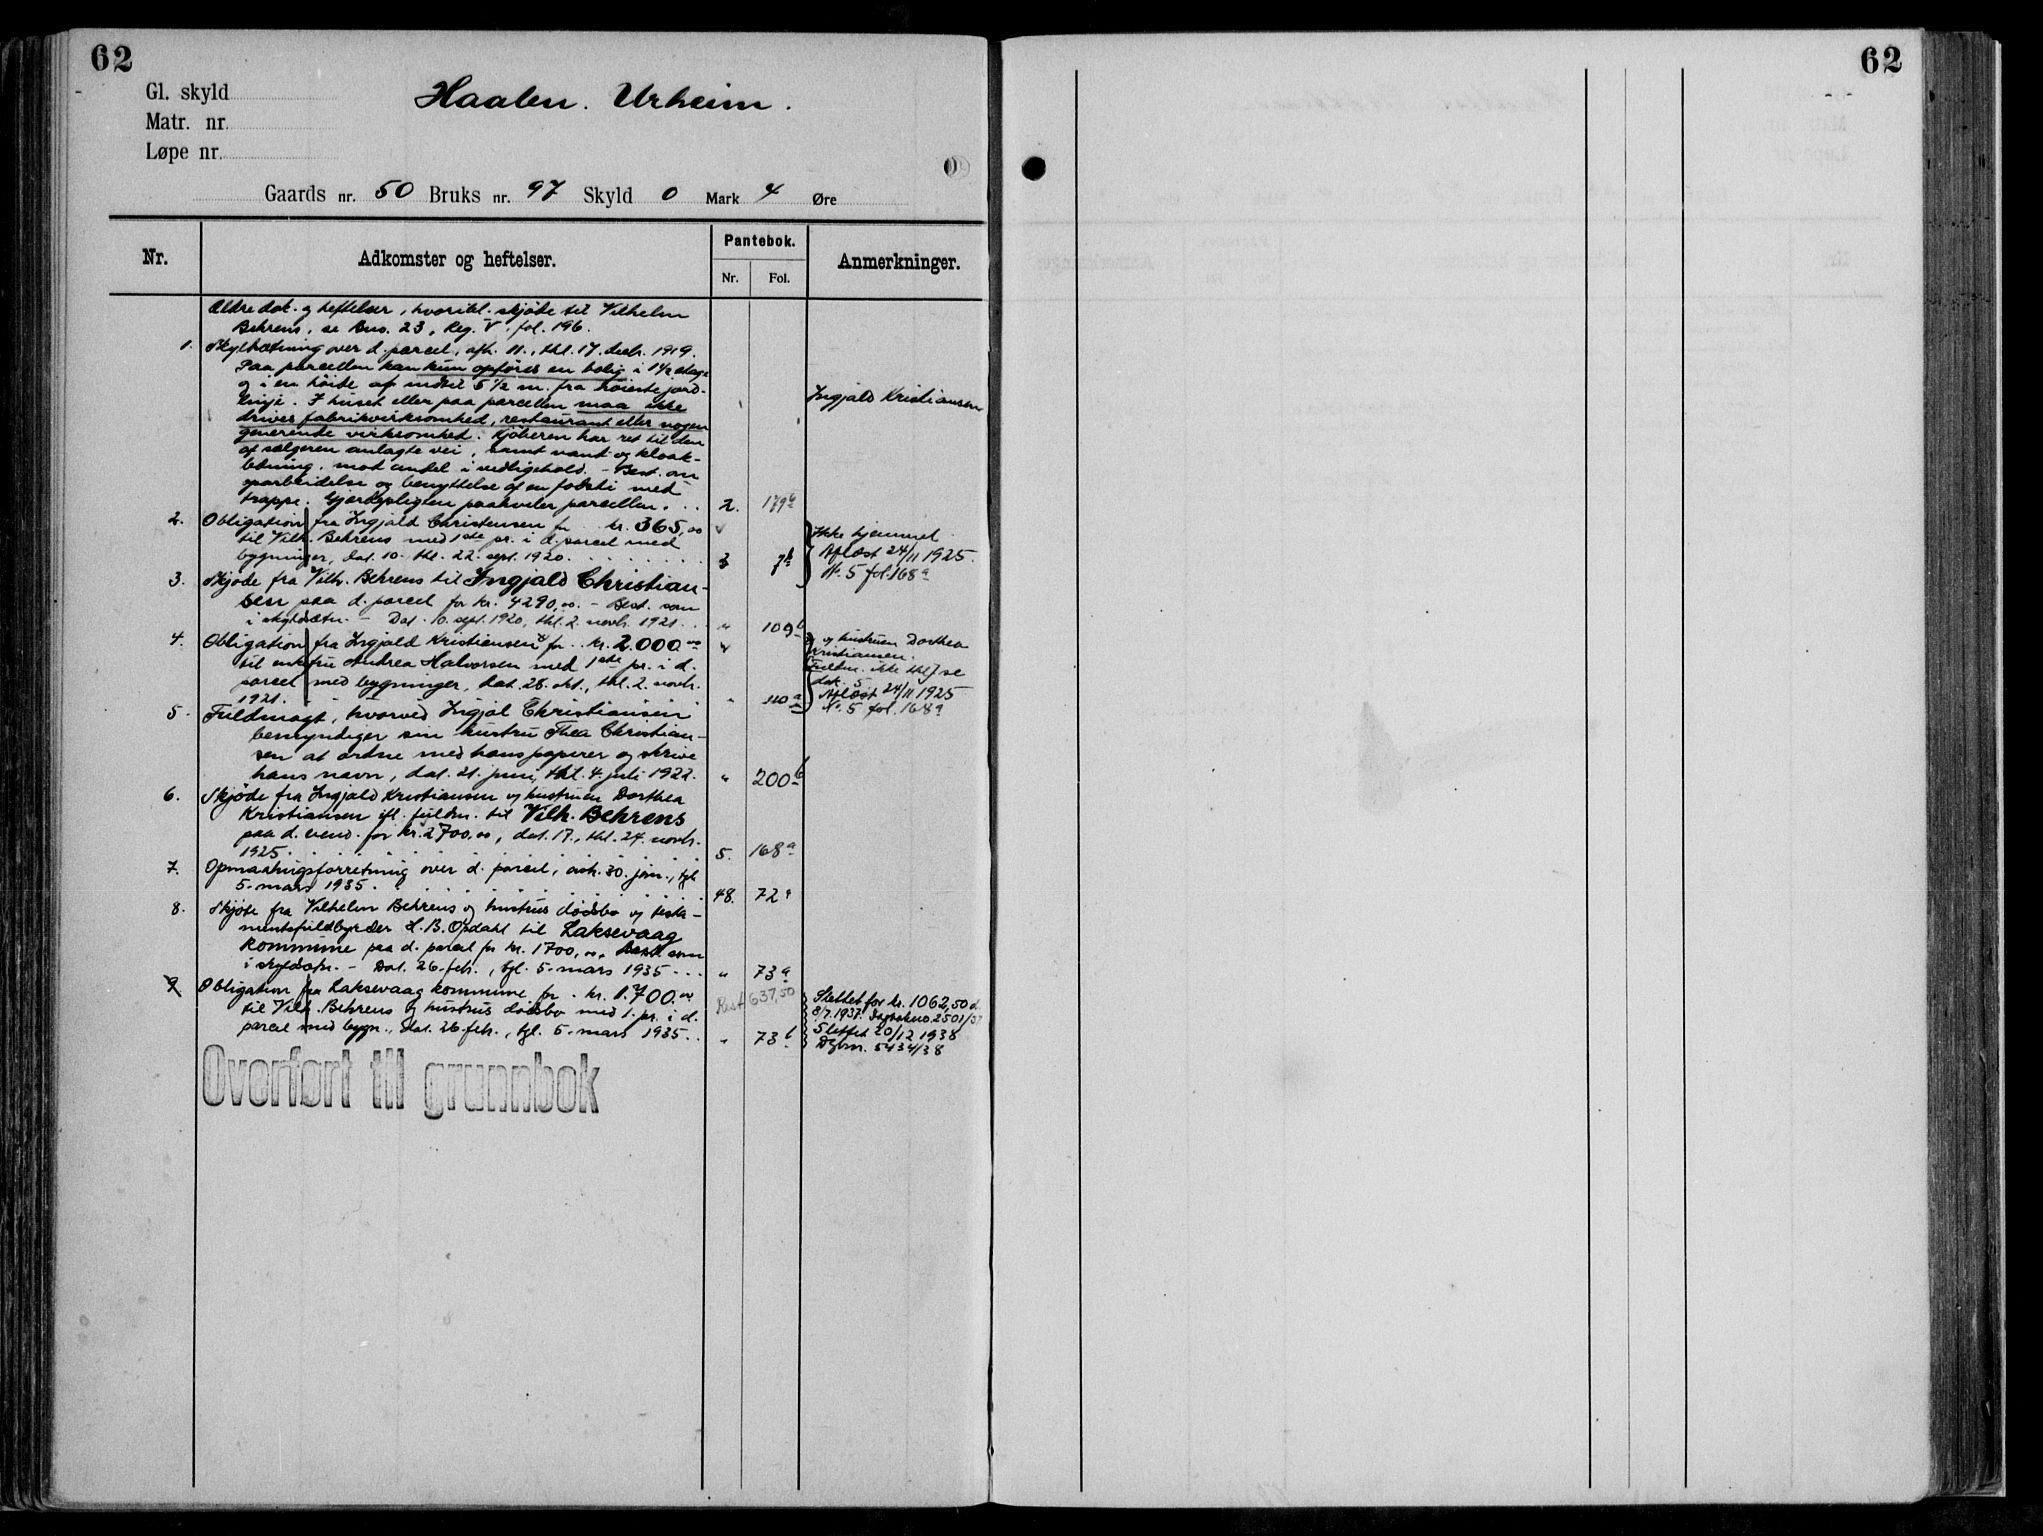 62
Gl. skyld
Haalen. Urheim.
Matr. nr.
Løpe nr.
Gaards nr. 50 Bruks nr. 97 Skyld 0 Mark 4 Øre
Nr.
Adkomster og heftelser.
Pantebok.
Nr. Fol.
Anmerkninger.
Ældre dok. og heftelser, hvoribl. skjøte til Vilhelm
Behrens, se Bno. 23, Reg. V, fol. 196.
1. Skyldsætning over d. parcel, afh. 11., thl. 17. decbr. 1919.
Paa parcellen kan kun opføres en bolig i 1½ etage
og i en høide af indtil 5½ m. fra høieste jord-
linje. I huset eller paa parcellen maa ikke
drives fabrikvirksomhed, restaurant eller nogen
generende virksomhed. Kjøberen har ret til den
af sælgeren anlagte vei, samt vand- og kloak-
ledning, mod andel i vedligehold. - Best. om
oparbeidelse og benyttelse af en fodsti med
trappe. Gjerdepligten paahviler parcellen. 2. 179b
Ingjald Kristiansen
2. Obligation fra Ingjald Christensen for kr. 365,00
til Vilh. Behrens med 1ste pr. i d. parcel med
bygninger, dat. 10. thl. 22. sept. 1920. 3 7b
Ikke hjemmel.
Aflæst 24/11 1925.
N. 5 fol. 168a
3. Skjøde fra Vilh. Behrens til Ingjald Christian-
sen paa d. parcel for kr. 4290,00. - Best. som
i skyldsætn. - Dat. 10. sept. 1920, thl. 2. novbr. 1921. " 109b
4. Obligation fra Ingjald Kristiansen for kr. 2.000,00
til enkefru Andrea Halvorsen med 1ste pr. i d.
parcel med bygninger, dat. 28. okt., thl. 2. novbr.
1921. " 110a
og hustruen Dorthea
Kristiansen.
Fuldm. ikke thl. se
dok. 5
Aflæst 24/11 1925
N. 5 fol. 168a
5. Fuldmagt, hvorved Ingjal Christiansen
bemyndiger sin hustru Thea Christian-
sen at ordne med hans papirer og skrive
hans navn, dat. 21. juni, thl. 4. juli 1922. " 200b
6. Skjøde fra Ingjald Kristiansen og hustruen Dorthea
Kristiansen ifl. fuldm. til Vilh. Behrens
paa d. eiend. for kr. 2700,00, dat. 17., thl. 24. novbr.
1925. 5. 168a
7. Opmaalingsforretning over d. parcel, avh. 30. jan., tgl.
5. mars 1935. 48. 72a
8. Skjøte fra Vilhelm Behrens og hustrus dødsbo ved testa-
mentsfuldbyrder H. B. Opdahl til Laksevaag
kommune paa d. parcel for kr. 1700,00. Best. som
i skyldsætn. - Dat. 26. febr., tgl. 5. mars 1935 " 73a
9. Obligation fra Laksevaag kommune for kr. 1.700,00
til Vilh. Behrens og hustrus dødsbo med 1. pr. i d.
parcel med bygn., dat. 26. febr., tgl. 5. mars 1935. " 73b
Rest 637,50
Slettet for kr. 1062,50 d.
8/7. 1937. Dagbokno. 2501/37
Slettet 20/12 1938
Dgbnr. 5434/38
Overført til grunnbok
62